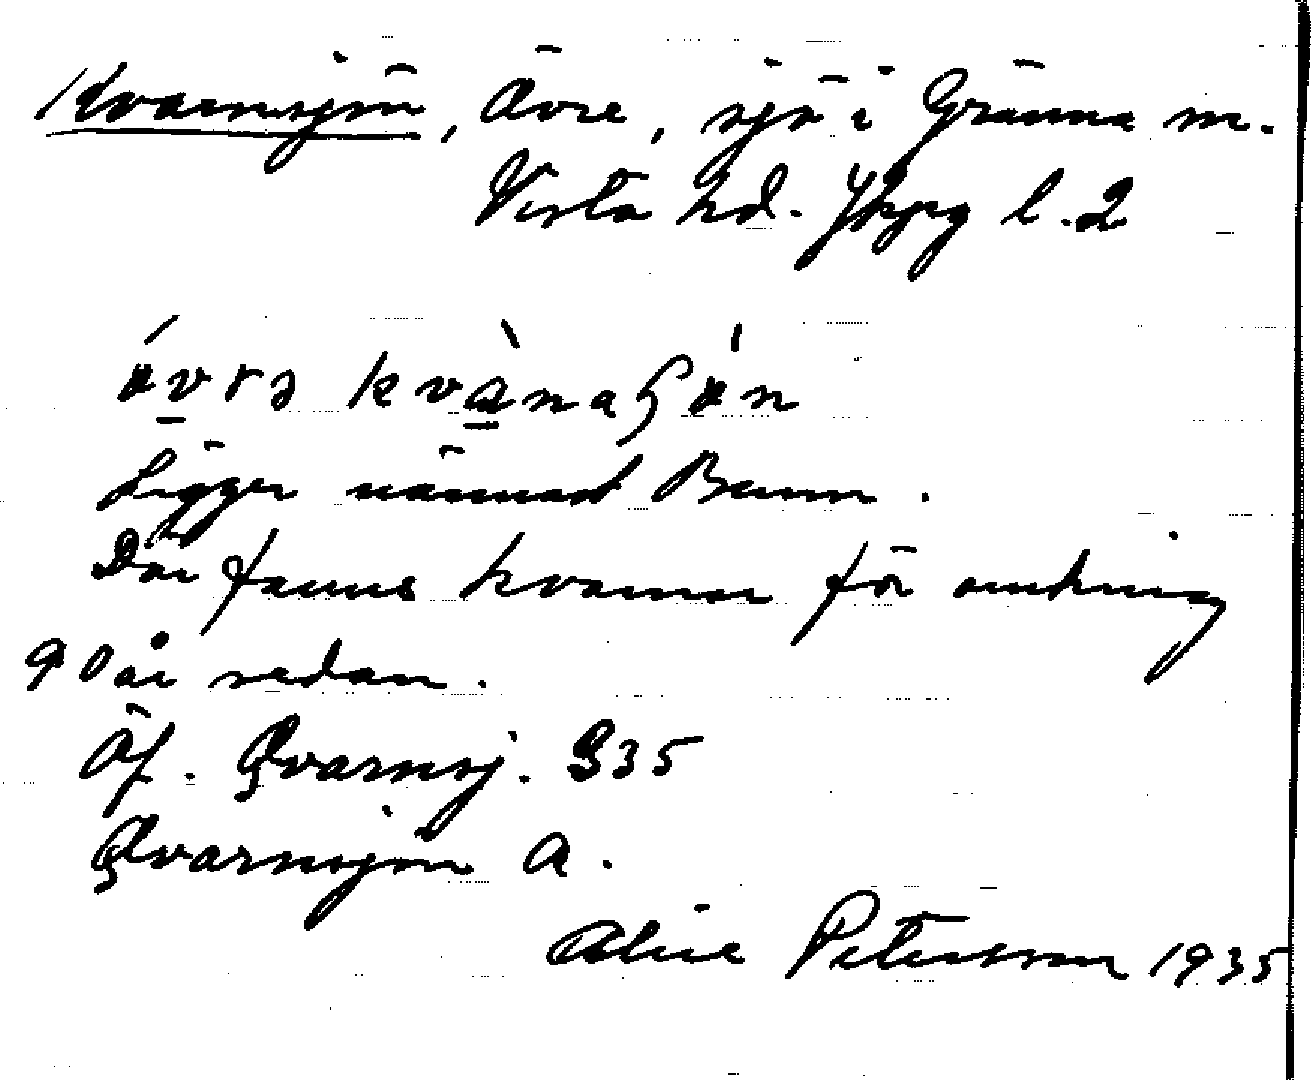 Kvarnsjön, Övre, sjö i Gränna sn.
Vista hd. Jkpg l. 2
Ligger närmast Bunn.
Där fanns kvarnar för omkring
90 år sedan.
Öf. Qvarnsj. S35
Qvarnsjön A.
Alice Petersson 1935